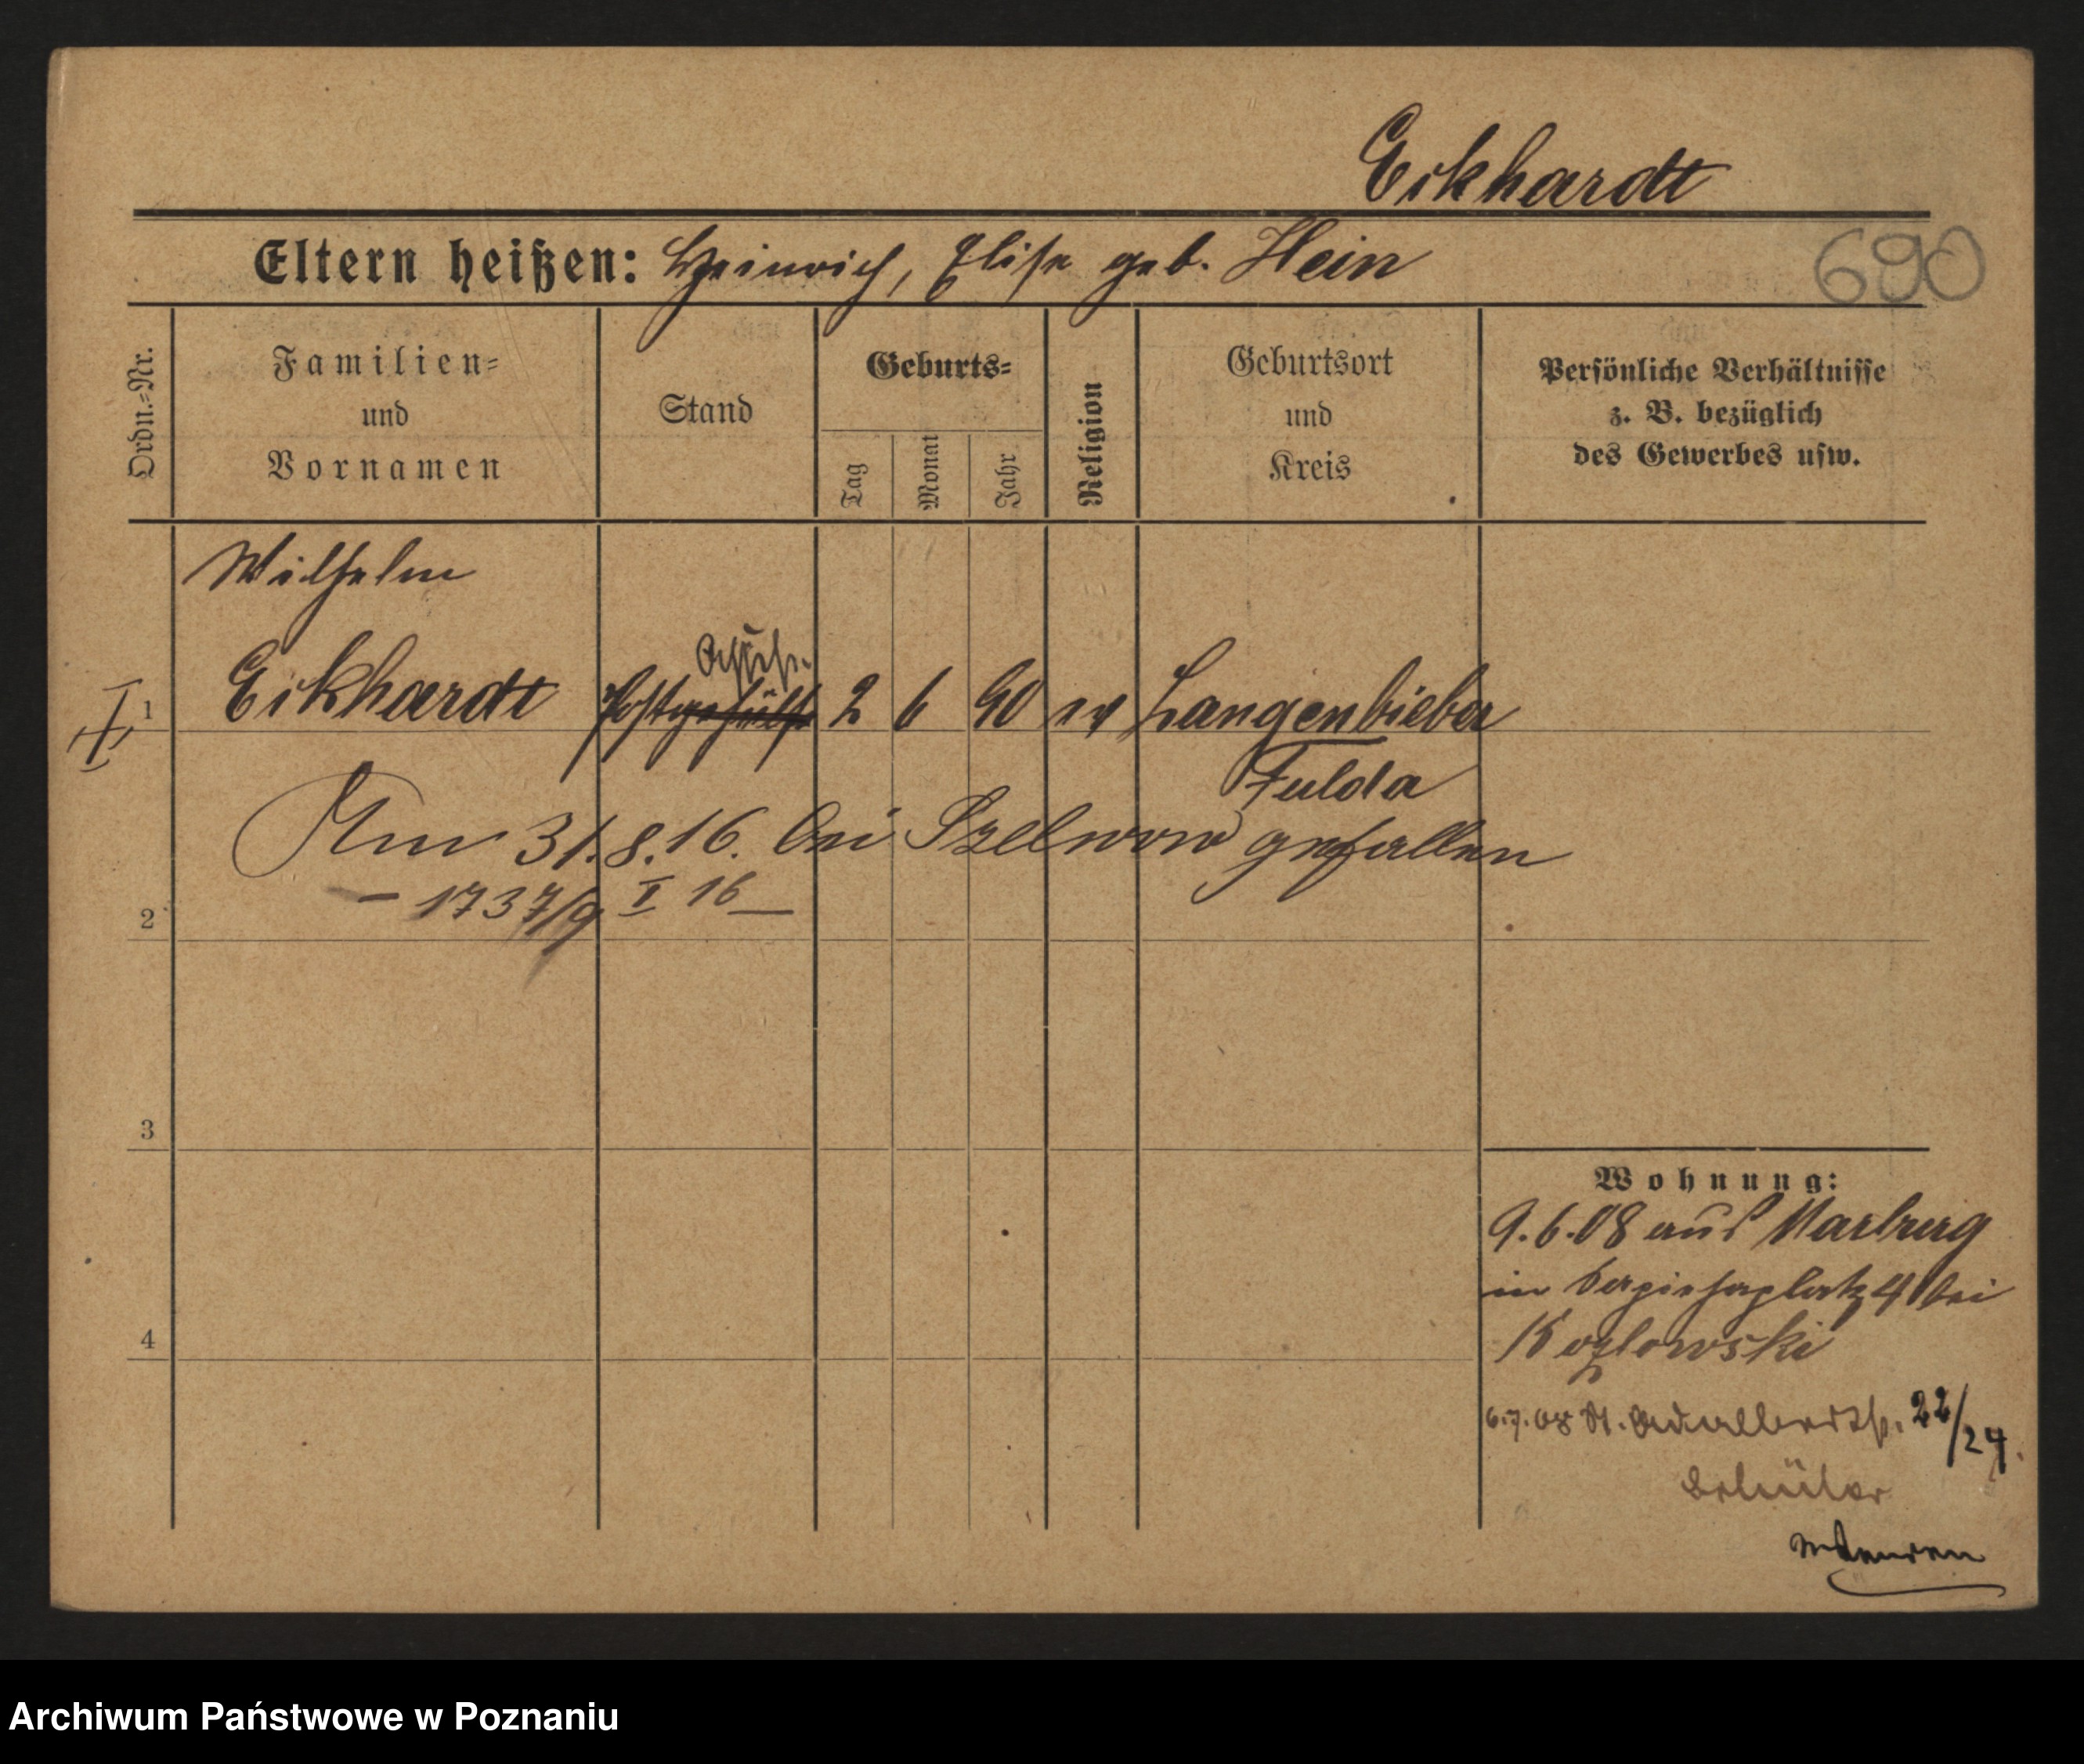 Eckhardt
Eltern heißen: Heinrich, Elise geb. Hein
690
Ordn.-Nr.
Familien-
und
Vornamen
Stand
Geburts-
Tag
Monat
Jahr
Religion
Geburtsort
und
Kreis
Persönliche Verhältnisse
z. B. bezüglich
des Gewerbes usw.
Wilhelm
1 Eckhardt Postgehülfe 2 6 90 ev Langenbieber
Fulda
Am 31.8.16. bei Szelwow gefallen
– 1737/9 I 16 –
2
3
4
Wohnung:
9.6.08 aus Marburg
in 4 bei
Kozlowski
6.7.08 St. Adalbertstr. 22/24.
Schüler
Archiwum Państwowe w Poznaniu